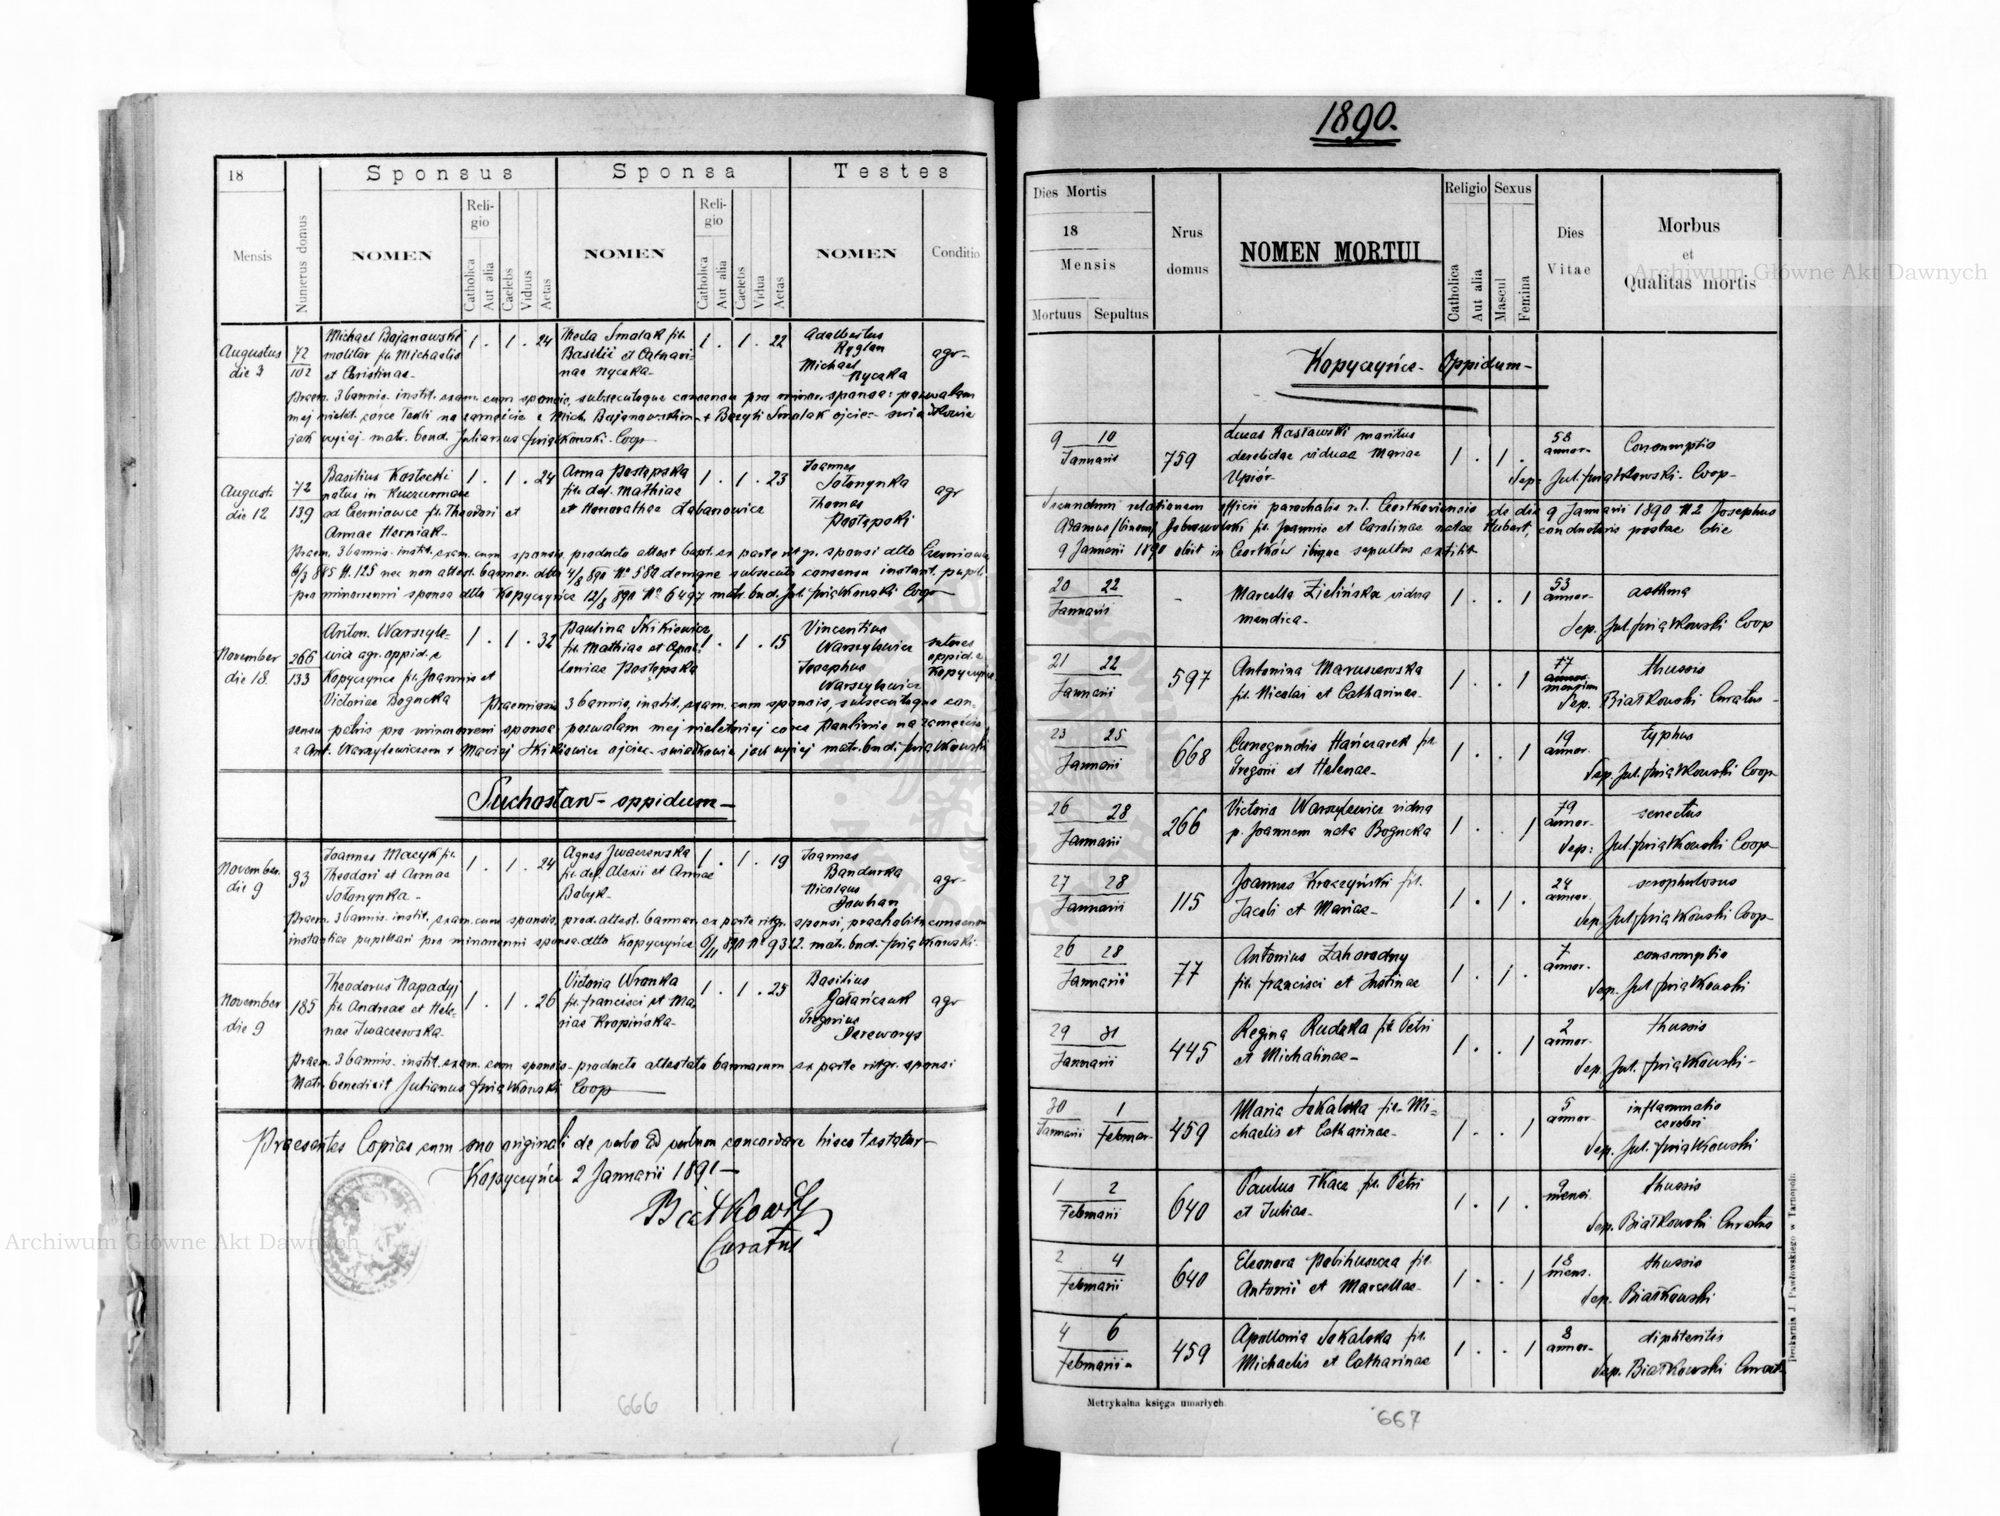 18
Sponsus
Sponsa
Testes
Mensis
Numerus domus
NOMEN
Reli-
gio
Catholica
Aut alia
Caelebs
Viduus
Aetas
NOMEN
Reli-
gio
Catholica
Aut alia
Caelebs
Vidua
Aetas
NOMEN
Conditio
Augustus
die 3
72
102
Michael Bojanowski
molitor fil. Michaelis
et Christinae-
1 . 1 . 24
Smolak fil.
Basilii et Cathari-
nae Nyczka-
1 . 1 . 22
Adalbertus
Ryglan
Michael
Nyczka
agr-
Praem. 3 bannis. instit. exam. cum sponsis, subsecutoque consensu pro minor. sponsa: pozwalam
mej nielet. córce Tekli na zamęście z Mich. Bojanowskim + Bazyli Smolak ojciec- świadkowie
jak wyżej- matr. bened. Julianus Kowski- Coop
August.
die 12
72
139
Basilius Kostecki
natus in Kuczurmare
ad Czerniowce fil. Theodori et
Annae Horniak-
1 . 1 . 24
Anna Postępska
fil. def. Mathiae
et Honorathae Łabanowicz
1 . 1 . 23
Joannes
Sołonynka
Thomas
Postępski
agr
Praem. 3 bannis. instit. exam. cum sponsis, producto attest. bapt. ex parte sponsi dtto Czerniowce
6/3 885 N. 125 nec non attest. bannor. dtto 4/8 890 No 580 denique subsecuto consensu instant. pupil.
pro minorenni sponsa dtto Kopyczyńce 12/8 890 No 6497 matr. bnd. Jul. Coop
November
die 18
266
133
Anton. Warszyle-
wicz agr. oppid. z
Kopyczynce fil. Joannis et
Victoriae Bogucka
1 . 1 . 32
Paulina Skikiewicz
fil. Mathiae et Apol-
loniae Postępska
1 . 1 . 15
Vincentius
Warszylewicz
Josephus
Warszylewicz
sutores
oppid. z
Kopyczynce
Praemissis 3 bannis, instit. exam. cum sponsis, subsecutoque con-
sensu patris pro minorenni sponsa pozwalam mej nieletniej córce Paulinie na zamęście
z Ant. Warszylewiczem + Maciej Skikiewicz ojciec- świadkowie jak wyżej matr. bnd.
Suchostaw- oppidum-
November.
die 9
93
Joannes Maczyk fil.
Theodori et Annae
Sołonynka-
1 . 1 . 24
Agnes Iwaczewska
fil. def. Alexii et Annae
Babyk-
1 . 1 . 19
Joannes
Bandurka
Nicolaus
Dowhan
agr-
Praem. 3 bannis. instit. exam. cum sponsis. prod. attest. bannor. ex parte sponsi, praehabito consensu
instantiae pupillari pro minorenni sponsa. dtto Kopyczyńce 6/11 890 No 9312. matr. bnd.
November
die 9
185
Theodorus Napadyj
fil. Andreae et Hele-
nae Iwaczewska-
1 . 1 . 26
Victoria Wronka
fil. Francisci et Ma-
riae Kropińska-
1 . 1 . 25
Basilius
Gregorius
Dereworyz
agr
Praem. 3 bannis. instit. exam. cum sponsis- producto attestato bannorum ex parte sponsi
Matr. benedixit Julianus Coop
Praesentes Copias cum suo originali de verbo ad verbum concordare hisce testatur-
Kopyczyńce 2 Januarii 1891-
Białkowski
Curatus
666
1890.
Dies Mortis
18
Mensis
Mortuus
Sepultus
Nrus
domus
NOMEN MORTUI
Religio
Catholica
Aut alia
Sexus
Mascul
Femina
Dies
Vitae
Morbus
et
Qualitas mortis
Kopyczyńce- Oppidum-
9 10
Januarii
759
Lucas Rasławski maritus
derelictae viduae Mariae
Upiór-
1 . 1 .
58
annor-
Consumptio
Sep. Jul. Coop-
Secundum relationem officii parochialis r.l. Czortkoviensis de die 9 Januarii 1890 N 2 Josephus
Adamus /binom/ fil. Joannis et Carolinae natae Hubert, conductoris postae die
9 Januarii 1890 obiit in Czortków ibique sepultus extitit
20 22
Januarii
-
Marcella Zielińska vidua
mendica-
1 . . 1
53
annor-
asthma
Sep. Jul. Coop
21 22
Januarii
597
Antonina Maruszewska
fil. Nicolai et Catharinae-
1 . . 1
tussis
Sep. Białkowski Curatus-
23 25
Januarii
668
Cunegundis Hańczarek fil.
Gregorii et Helenae-
1 . . 1
19
annor-
typhus
Sep. Jul. Coop
26 28
Januarii
266
Victoria Warszylewicz vidua
p. Joannem nata Bogucka
1 . . 1
79
annor-
senectus
Sep: Jul. Coop
27 28
Januarii
115
Joannes Kraczyński fil.
Jacobi et Mariae-
1 . 1 .
24
annor-
scrophulosus
Sep. Jul. Coop
26 28
Januarii
77
Antonius Zahorodny
fil. Francisci et Justinae
1 . 1 .
7
annor.
consumptio
Sep. Jul.
29 31
Januarii
445
Regina Rudzka fil. Petri
et Michalinae-
1 . . 1
2
annor-
thussis
Sep. Jul.
30 1
Januarii Februar-
459
Maria Sokalska fil. Mi-
chaelis et Catharinae-
1 . . 1
5
annor-
inflammatio
cerebri
Sep. Jul.
1 2
Februarii
640
Paulus Tkacz fil. Petri
et Juliae-
1 . 1 .
9
mensi.
thussis
Sep. Białkowski Curatus
2 4
Februarii
640
Eleonora fil.
Antonii et Marcellae-
1 . . 1
18
mens.
thussis
Sep. Białkowski
4 6
Februarii-
459
Apollonia Sokalska fil.
Michaelis et Catharinae
1 . . 1
8
annor-
diphteritis
Sep. Białkowski Curat.
Metrykalna księga umarłych.
Drukarnia J. Pawłowskiego w Tarnopolu
667
Archiwum Główne Akt Dawnych
Archiwum Główne Akt Dawnych